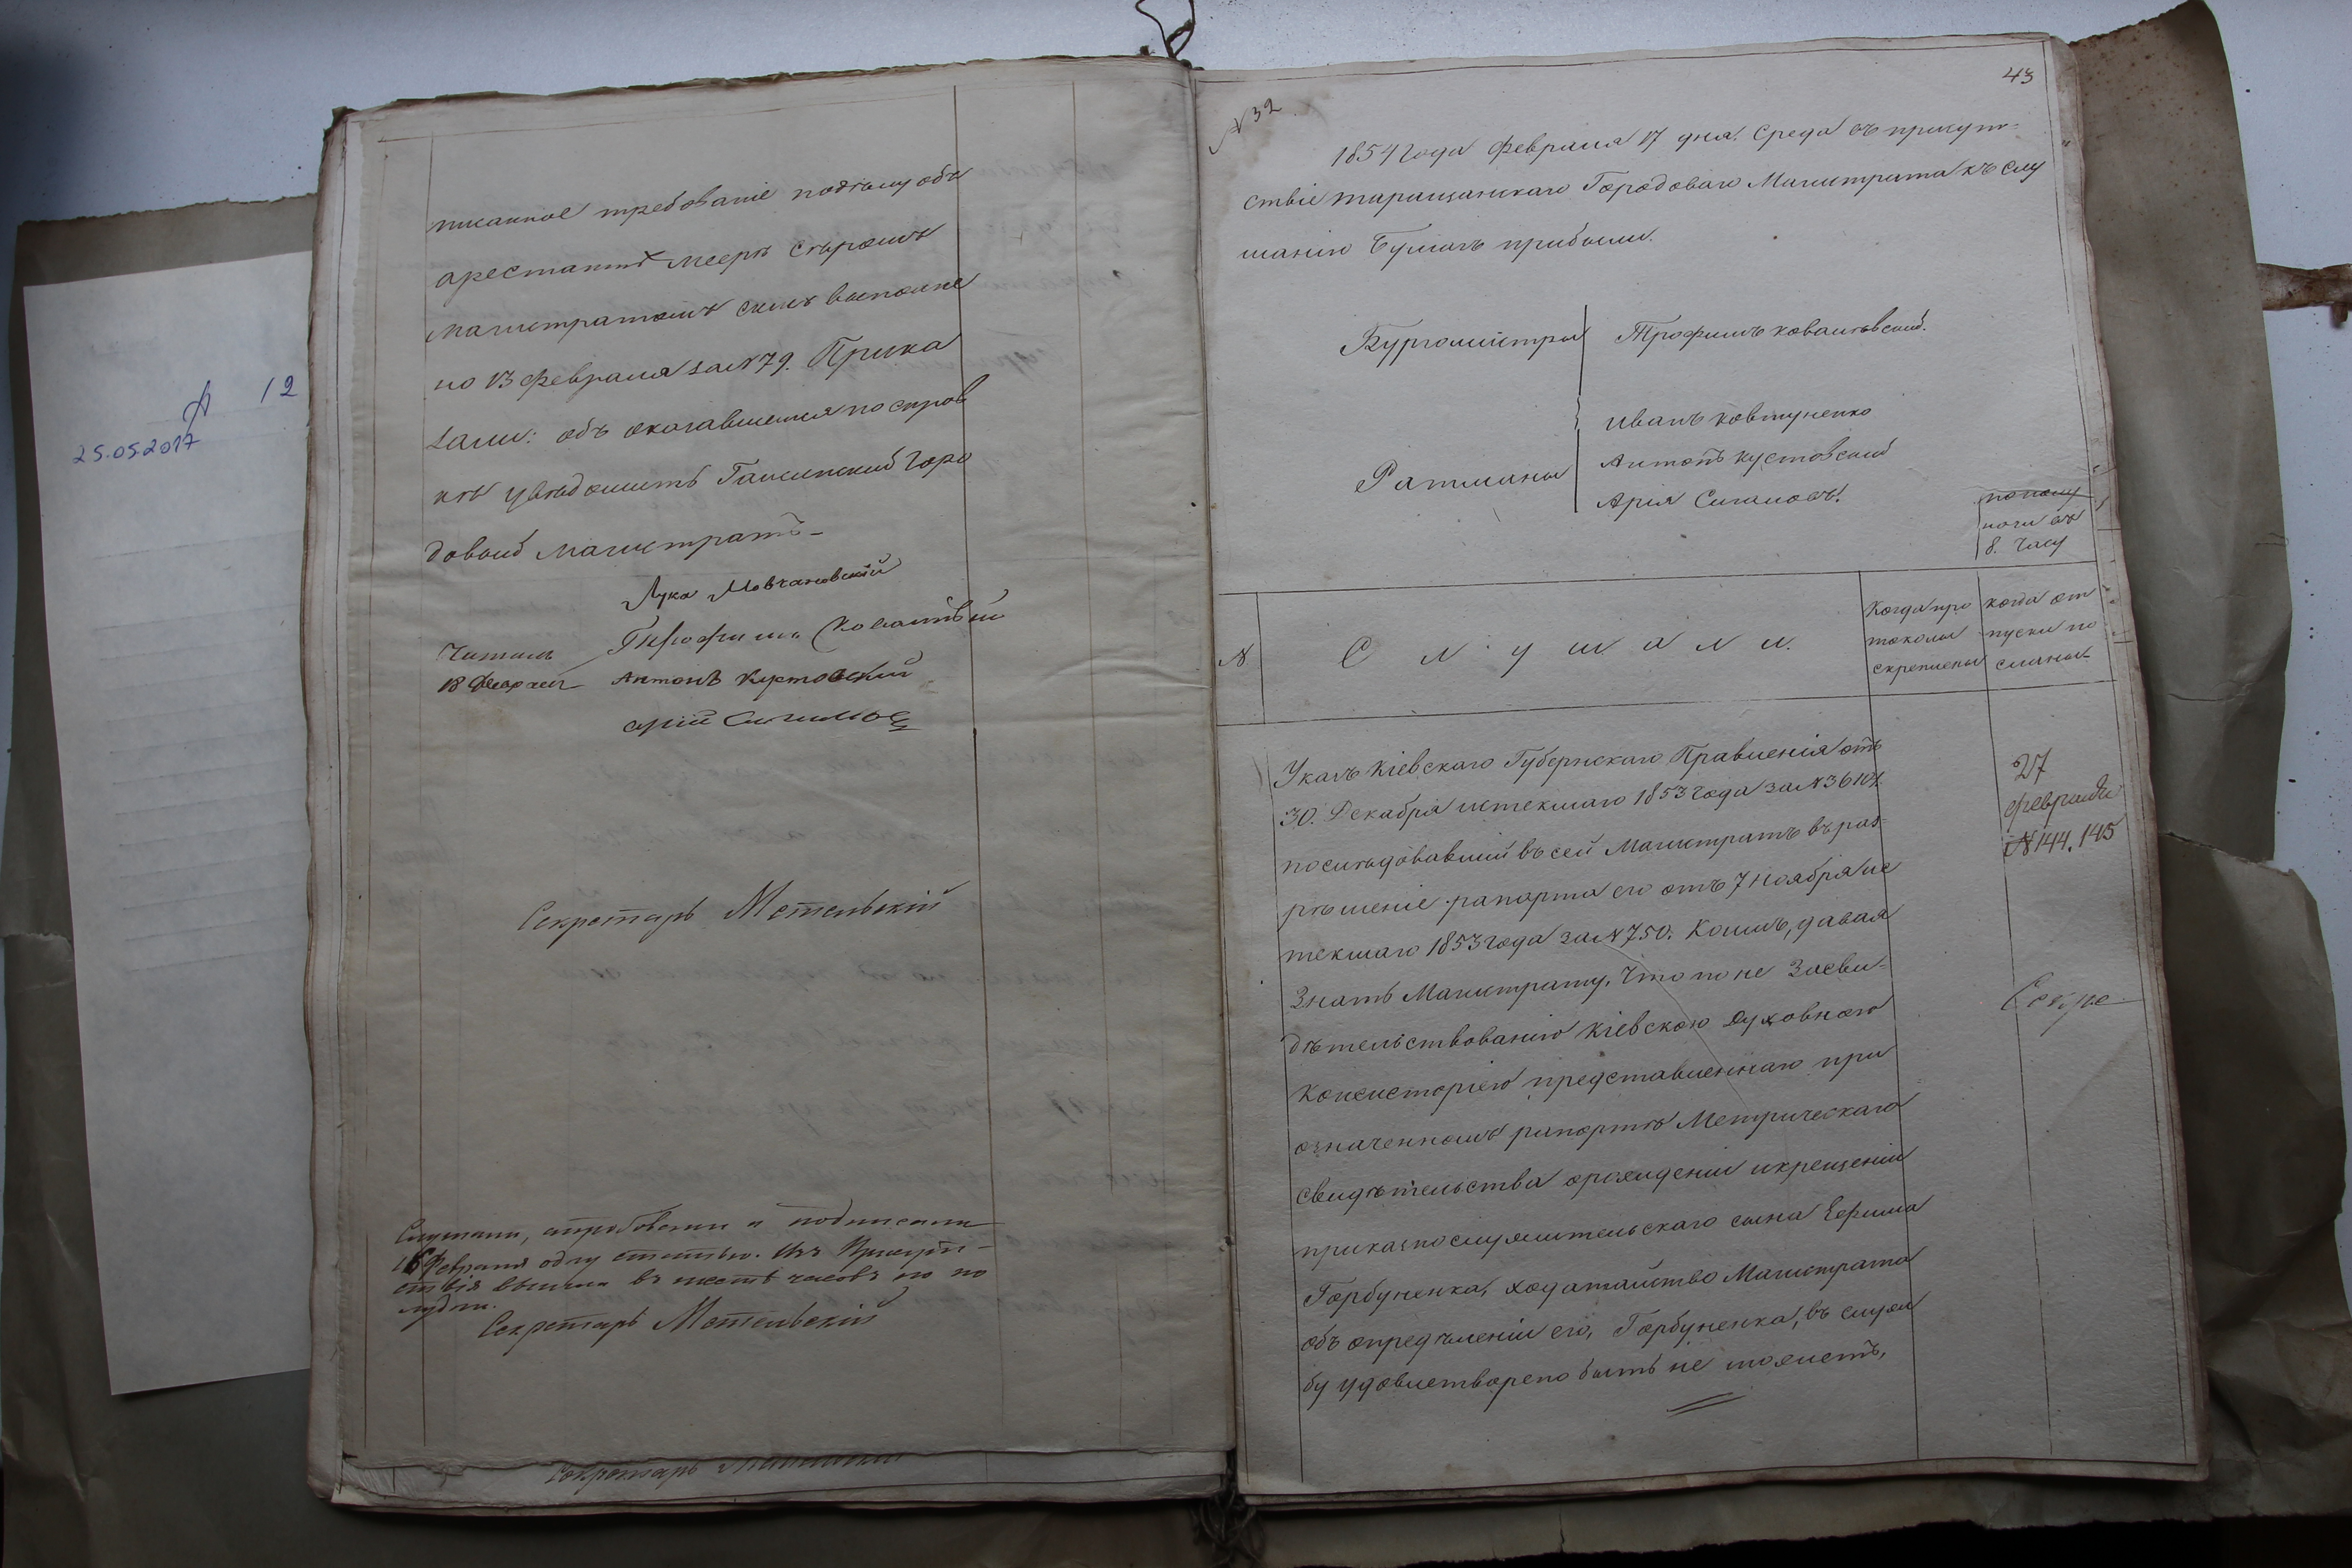 12
25.05.2017
писанное требованіеподѣлу объ
арестантѣ Меерѣ Сыромъ
Магистратомъ симъ выполне
но 13 февраля за № 79. Прика
зали: объ оказавшемся по справ
кѣ увѣдомить Городо
довый Магистратъ
Лука Мовчановскій
Трофимъ
Читалъ
18 февраля Антонъ Кустовский
арій
Секретарь Метельскій
Слушали, апробовали и подписали
16 февраля одну статью. Изъ Присутст-
ствія вышли въ шесть часовъ по по
лудни.
Секретарь Метельскій
Секретарь
43
№ 32
1854 года февраля 17 дня. Среда въ присут-
ствіе таращанскаго Городоваго Магистрата къ слу
шанію Бумагъ прибыли.
Бургомистры Трофимъ ковалѣвский.
иванъ ковтуненко
Ратманы Антонъ кустовский
Арія Сигаловъ.
пополу
ночи въ
8. часу
№ Слушали. Когда про
токолы
скреплены когда от
пуски по
сланы
Указъ Кіевскаго Губернскаго Правленія отъ
30. Декабря истекшаго 1853 года за №
послѣдовавшій въ сей Магистратъ въ раз-
рѣшеніе рапорта его отъ 7 ноября ис
текшаго 1853 года за № 750. Коимъ, давая
Знать Магистрату, что по не Засви-
дѣтельствованію Кіевскою Духовною
Консисторіею представленнаго при
означенномъ рапортѣ Метрическаго
свидѣтельства о рожденіи и крещеніи
приказнослужительскаго сына Ефима
Горбуненка, ходатайство Магистрата
объ опредѣленіи его, Горбуненка, въ служ
бу удовлетворено быть не можетъ.
27
февраля
№ 144. 145